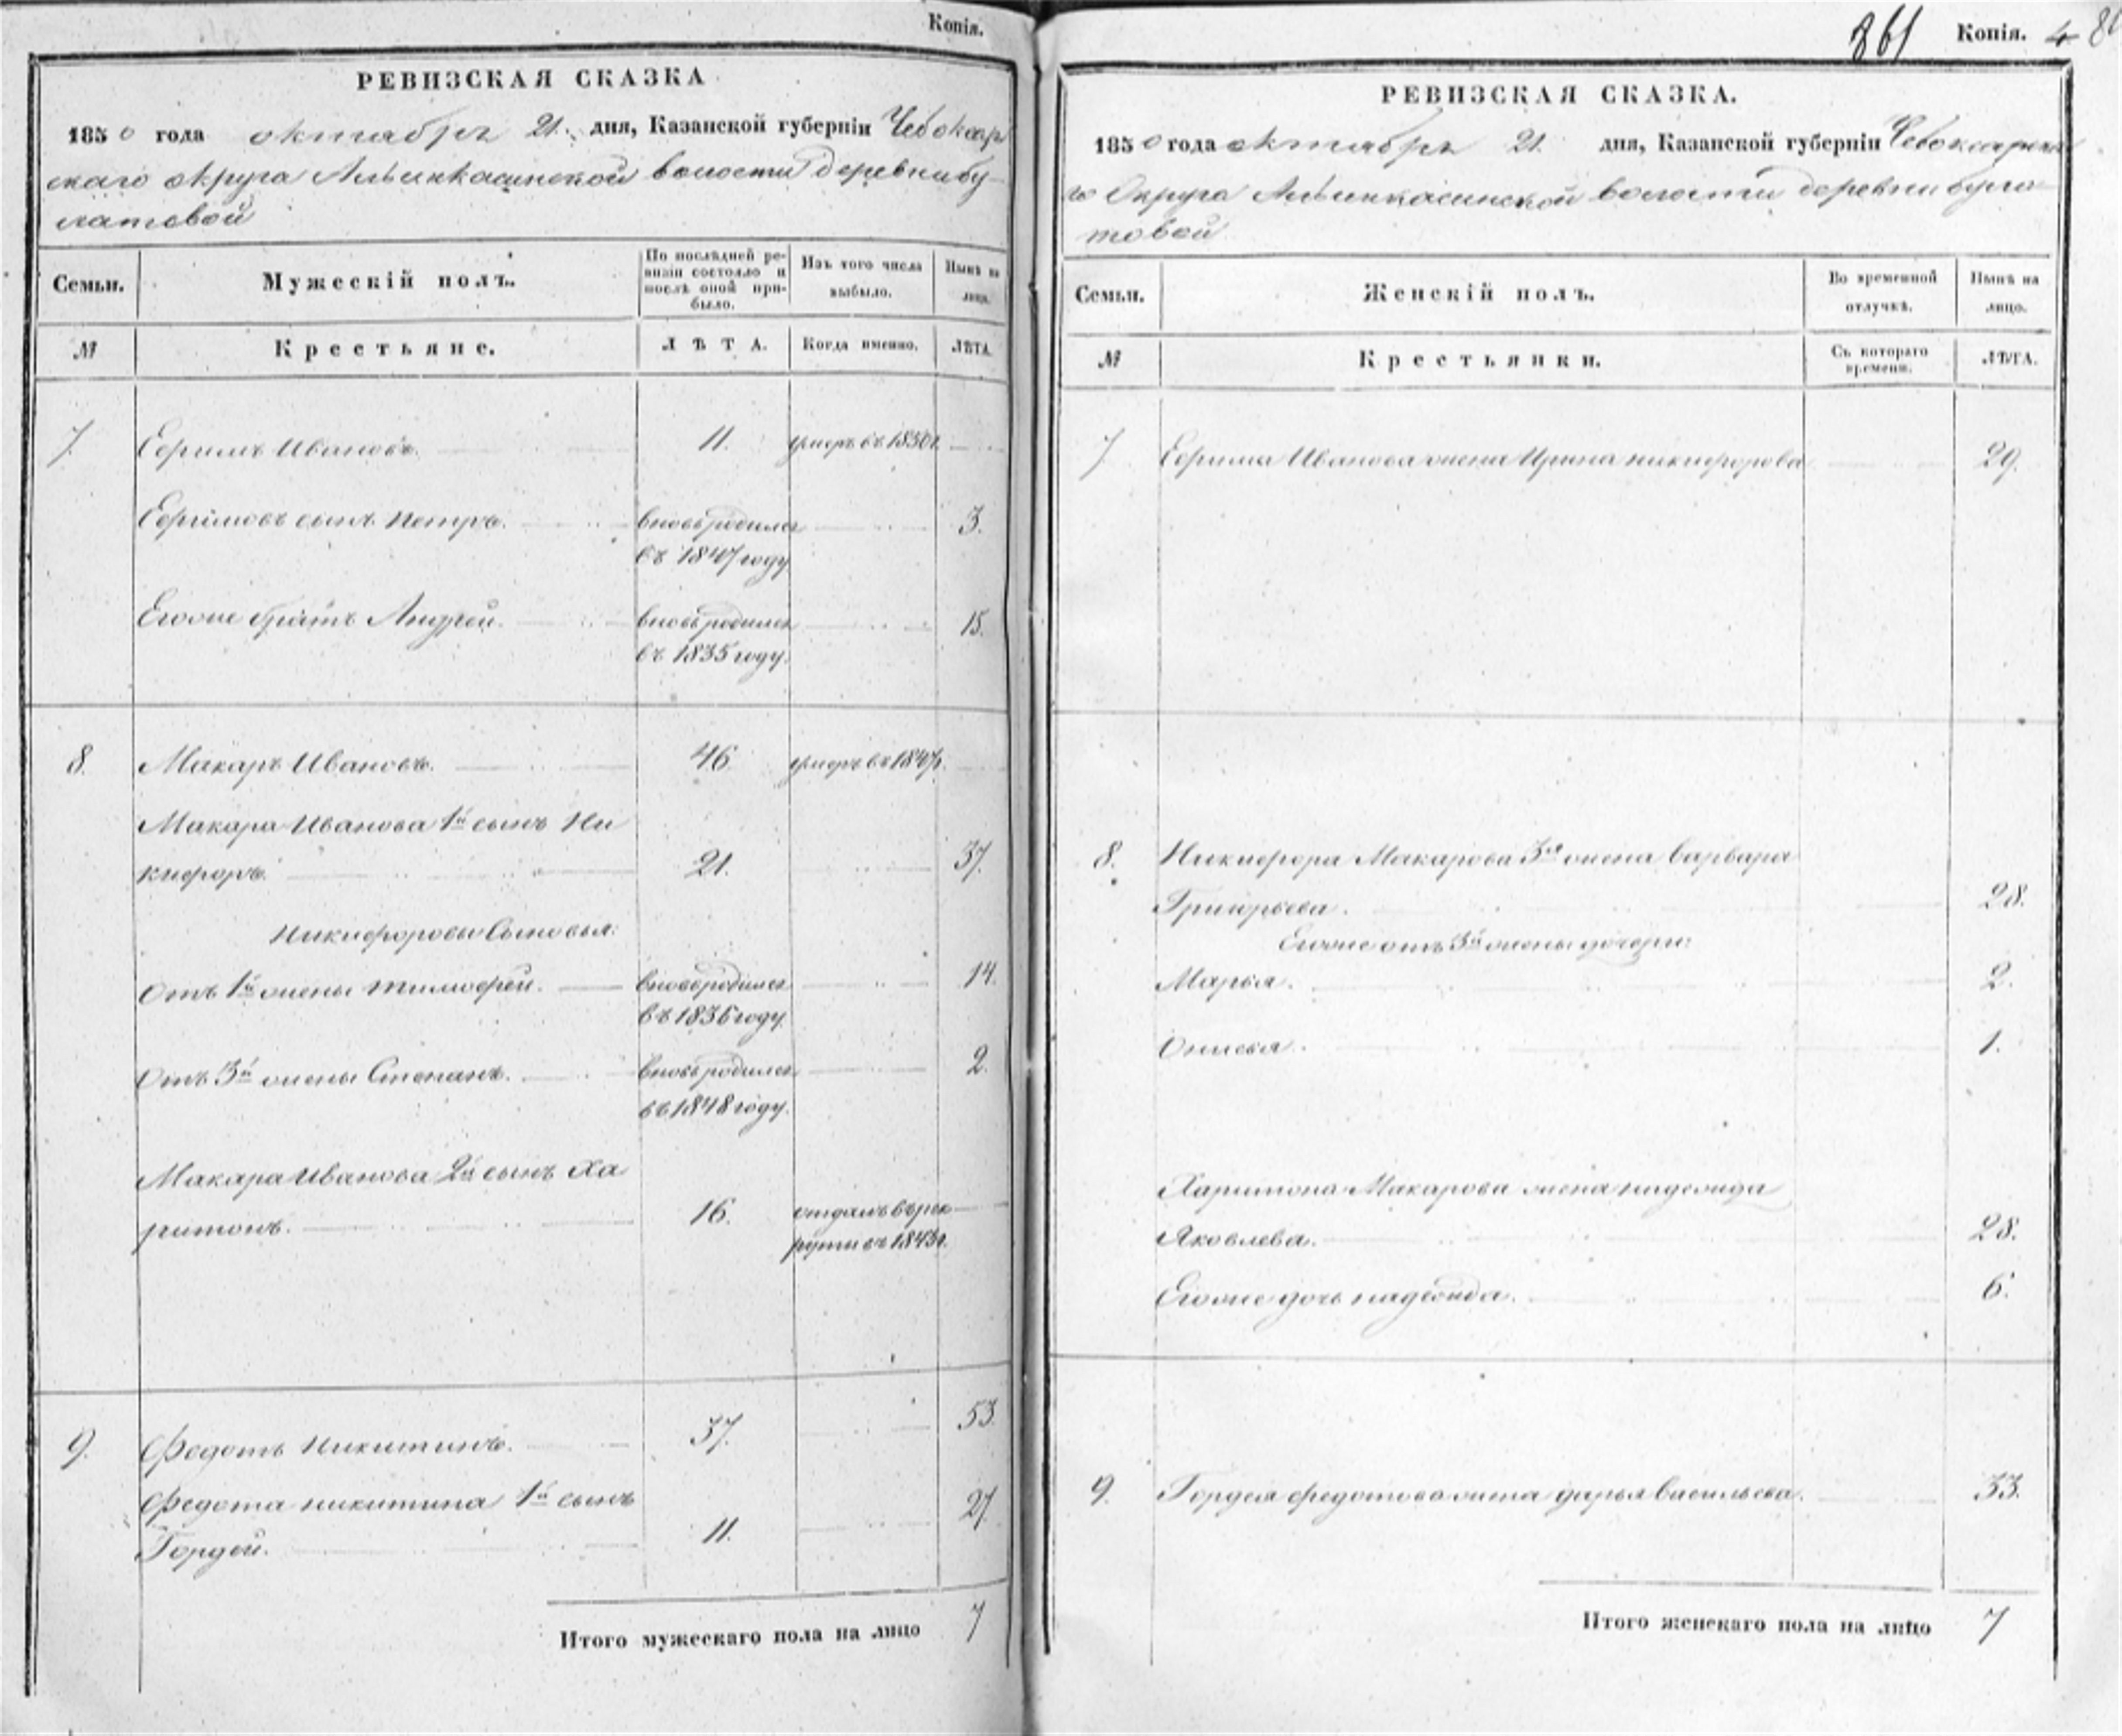 Копія.
РЕВИЗСКАЯ СКАЗКА
1850 года октября 21. дня, Казанской губерніи Чебоксар
скаго округа Алымкасинской волости деревни бу
латовой
Семьи. Мужескій полъ. По послѣдней ревизіи состояло и послѣ оной прибыло. Изъ того числа выбыло. Нынѣ на лицо.
№ Крестьяне. ЛѢТА. Когда именно. ЛѢТА.
7. Ефримъ Ивановъ. 11. умеръ въ 1850 г.
Ефримовъ сынъ Петръ. вновь родился 3.
въ 1847 году
Егоже братъ Андрей. вновь родился 15.
въ 1835 году.
8. Макаръ Ивановъ. 46. умеръ въ 1847 г.
Макара Иванова 1й сынъ Ни
кифоръ. 21. 37.
Никифоровы Сыновья:
Отъ 1й жены тимофей. вновь родился 14.
въ 1836 году.
Отъ 3й жены Степанъ. вновь родился 2.
въ 1848 году.
Макара Иванова 2й сынъ Ха
ритонъ. 16. отданъ въ рек
руты въ 1843 г.
9. Федотъ Никитинъ. 37. 53.
Федота никитина 1й сынъ
Гордей. 11. 27.
Итого мужескаго пола на лицо 7
861 Копія. 4
РЕВИЗСКАЯ СКАЗКА.
1850 года октября 21. дня, Казанской губерніи Чебоксарска
го Округа Алымкасинской волости деревни була
товой
Семьи. Женскій полъ. Во временной отлучкѣ. Нынѣ на лицо.
№ Крестьянки. Съ котораго времени. ЛѢТА.
7. Ефрима Иванова жена Ирина никифорова 29.
8. Никифора Макарова 3я жена варвара
Григорьева. 28.
Егоже отъ 3й жены дочери:
Марья. 2.
Онисья. 1.
Харитона Макарова жена надежда
Яковлева. 28.
Егоже дочь надежда. 6.
9. Гордея федотова жена дарья васильева. 33.
Итого женскаго пола на лицо 7